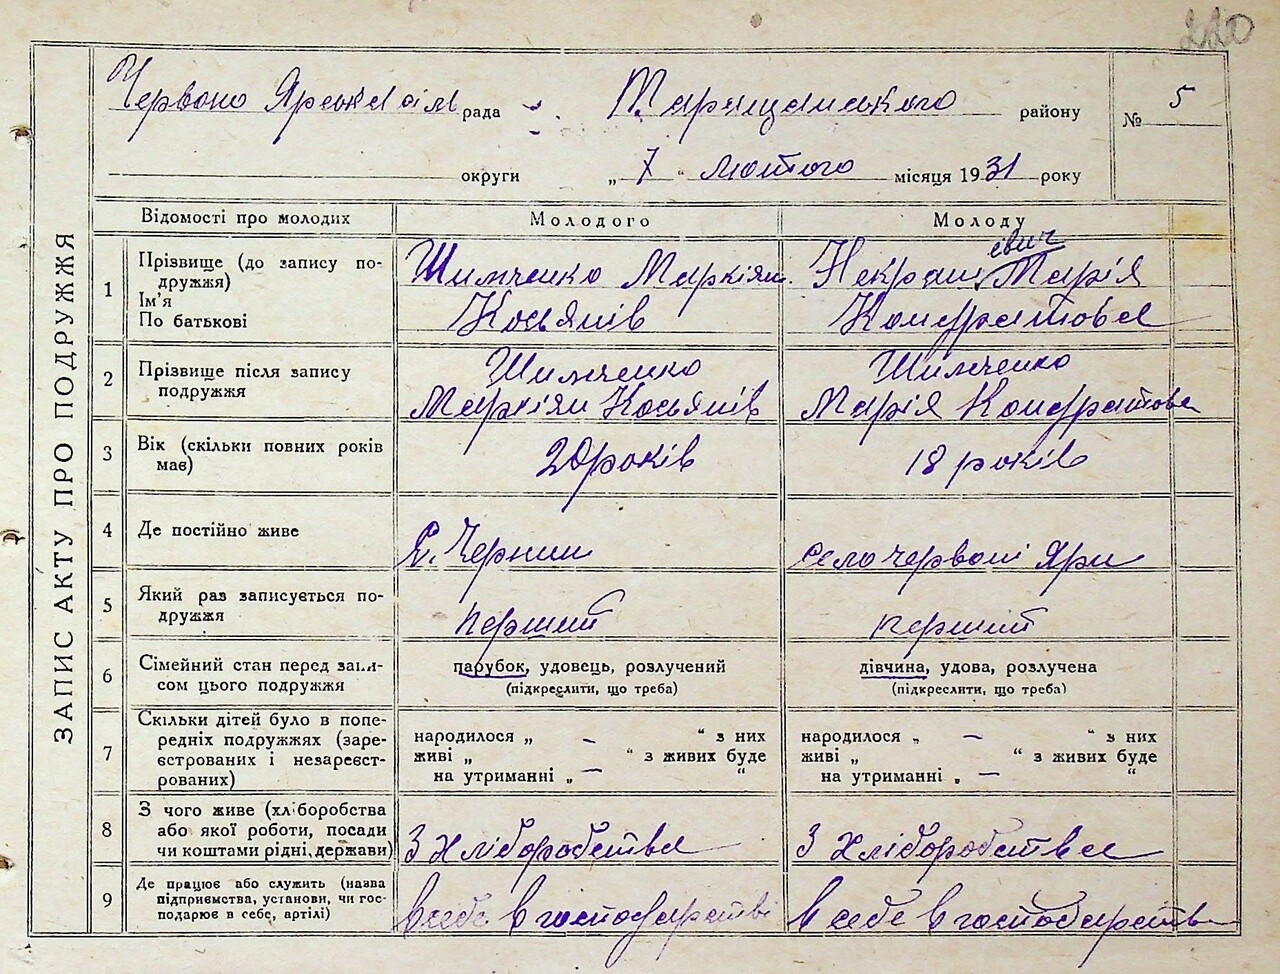 220
Червоно Ярська сіль рада Таращанського району № 5
округи „ 7 “ лютого місяця 1931 року
ЗАПИС АКТУ ПРО ПОДРУЖЖЯ
Відомості про молодих Молодого Молоду
1 Прізвище (до запису подружжя)
Ім'я
По батькові
Шимченко Маркіян
Косьянів
Некрашевич Марія
Кондратова
2 Прізвище після запису
подружжя
Шимченко
Маркіян Косьянів
Шимченко
Марія Кондратова
3 Вік (скільки повних років
має)
20 років
18 років
4 Де постійно живе
С. Чернин
село червоні Яри
5 Який раз записується по-
дружжя
перший
перший
6 Сімейний стан перед запи-
сом цього подружжя
парубок, удовець, розлучений
(підкреслити, що треба)
дівчина, удова, розлучена
(підкреслити, що треба)
7 Скільки дітей було в попе-
редніх подружжях (заре-
єстрованих і незареєст-
рованих)
народилося „ — “ з них
живі „ “ з живих буде
на утриманні „ — “
народилося „ — “ з них
живі „ “ з живих буде
на утриманні „ — “
8 З чого живе (хліборобства
або якої роботи, посади
чи коштами рідні, держави)
З хліборобства
З хліборобства
9 Де працює або служить (назва
підприємства, установи, чи гос-
подарює в себе, артілі)
в себе в господарстві
в себе в господарстві